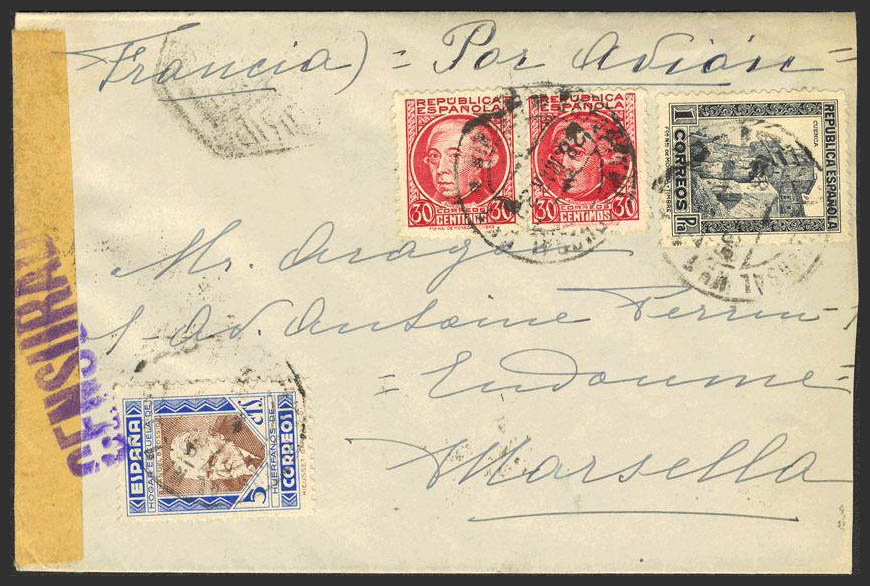 Francia) = Por Avión =
REPÚBLICA ESPAÑOLA
30 CORREOS
CENTIMOS
REPÚBLICA ESPAÑOLA
30 CORREOS 30
CENTIMOS
1 CORREOS Pta
REPUBLICA ESPAÑOLA
CUENCA
Mr. Aragon
1 Av Antoine Perrin
= Endoume =
Marsella
CENSURAD
ESPAÑA
HOGAR ESCUELA DE
HUERFANOS DE
CORREOS
5 cts.